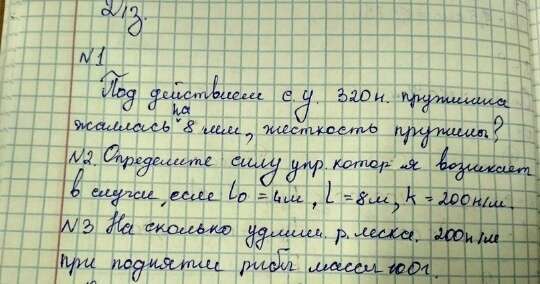 Д/з.
№1
Под действием с.у. 320н. пружинка
жаллась на 8 мм, жесткость пружины?
№2. Определите силу упр. котор я возникает
в случаи, если Lo = 4м, L = 8м, k = 200н/м.
№3 На сколько удлин. р. леска. 200н/м
при поднятии рыбы массы 100г.